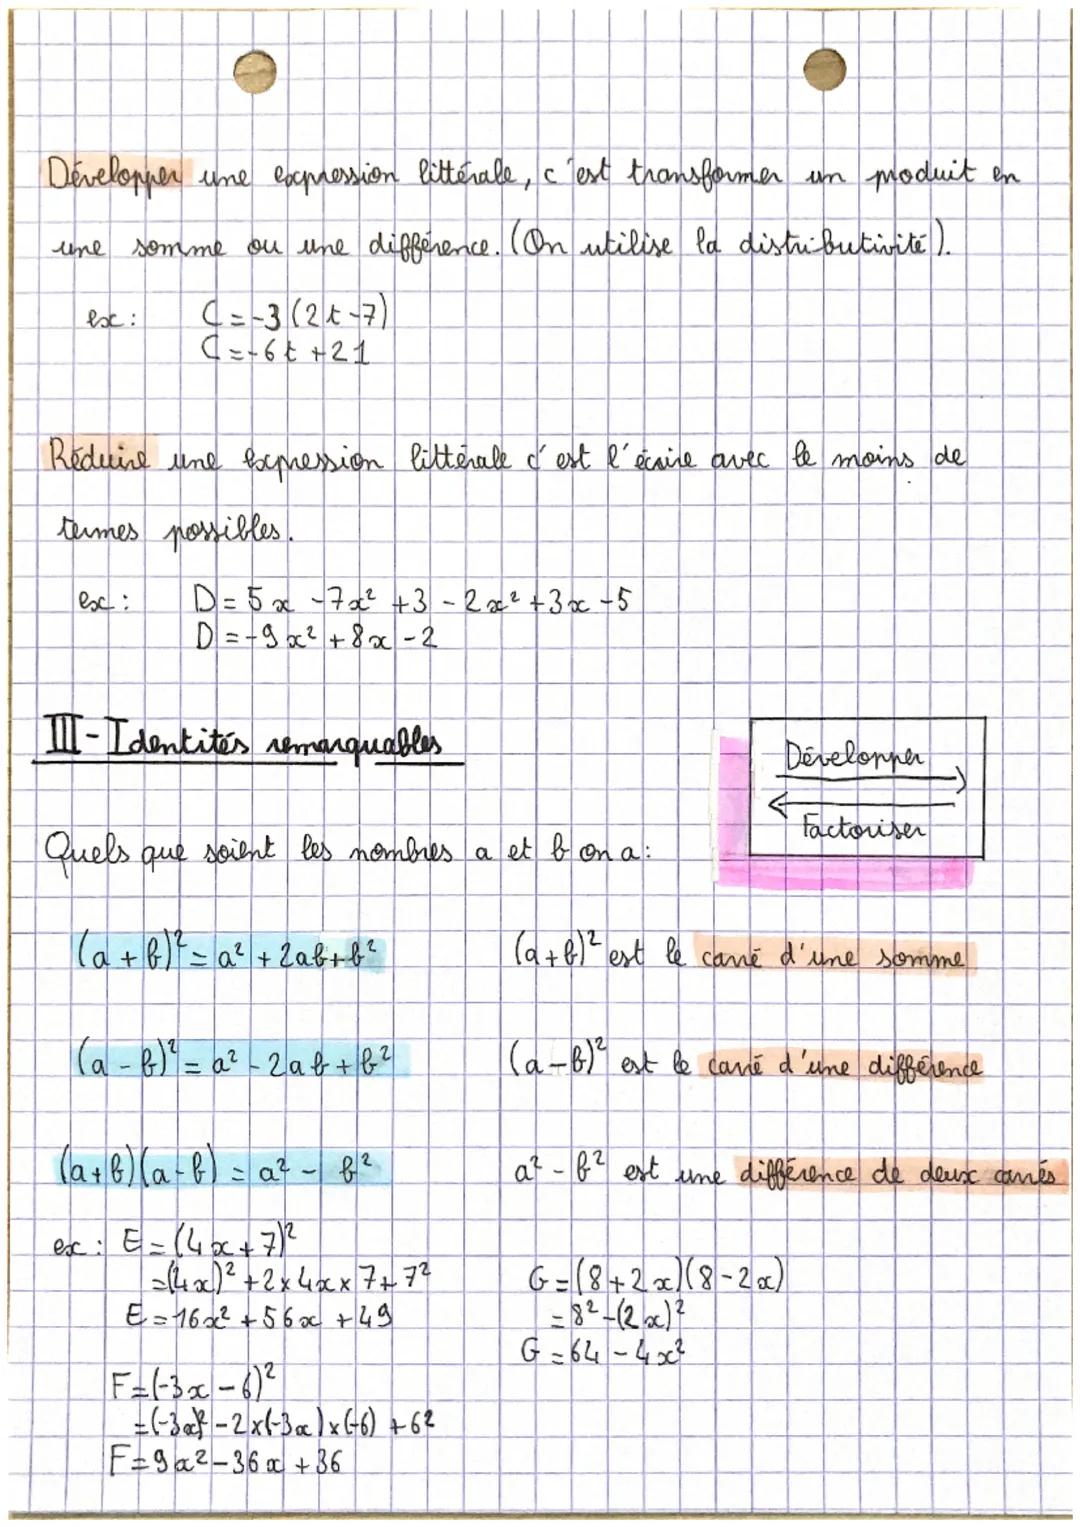 Développer une expression littérale, c'est transformer un produit en
une somme ou une différence. (On utilise la distributivité).
ex : C = -3 (2t - 7)
C = -6t + 21
Réduire une expression littérale c'est l'écrire avec le moins de
termes possibles.
ex : D = 5x - 7x² + 3 - 2x² + 3x - 5
D = -9x² + 8x - 2
III - Identités remarquables
Développer
Factoriser
Quels que soient les nombres a et b on a :
(a + b)² = a² + 2ab + b² (a + b)² est le carré d'une somme
(a - b)² = a² - 2ab + b² (a - b)² est le carré d'une différence
(a + b)(a - b) = a² - b² a² - b² est une différence de deux carrés
ex : E = (4x + 7)²
= (4x)² + 2 × 4x × 7 + 7²
E = 16x² + 56x + 49
G = (8 + 2x)(8 - 2x)
= 8² - (2x)²
G = 64 - 4x²
F = (-3x - 6)²
= (-3x)² - 2 × (-3x) × (-6) + 6²
F = 9x² - 36x + 36